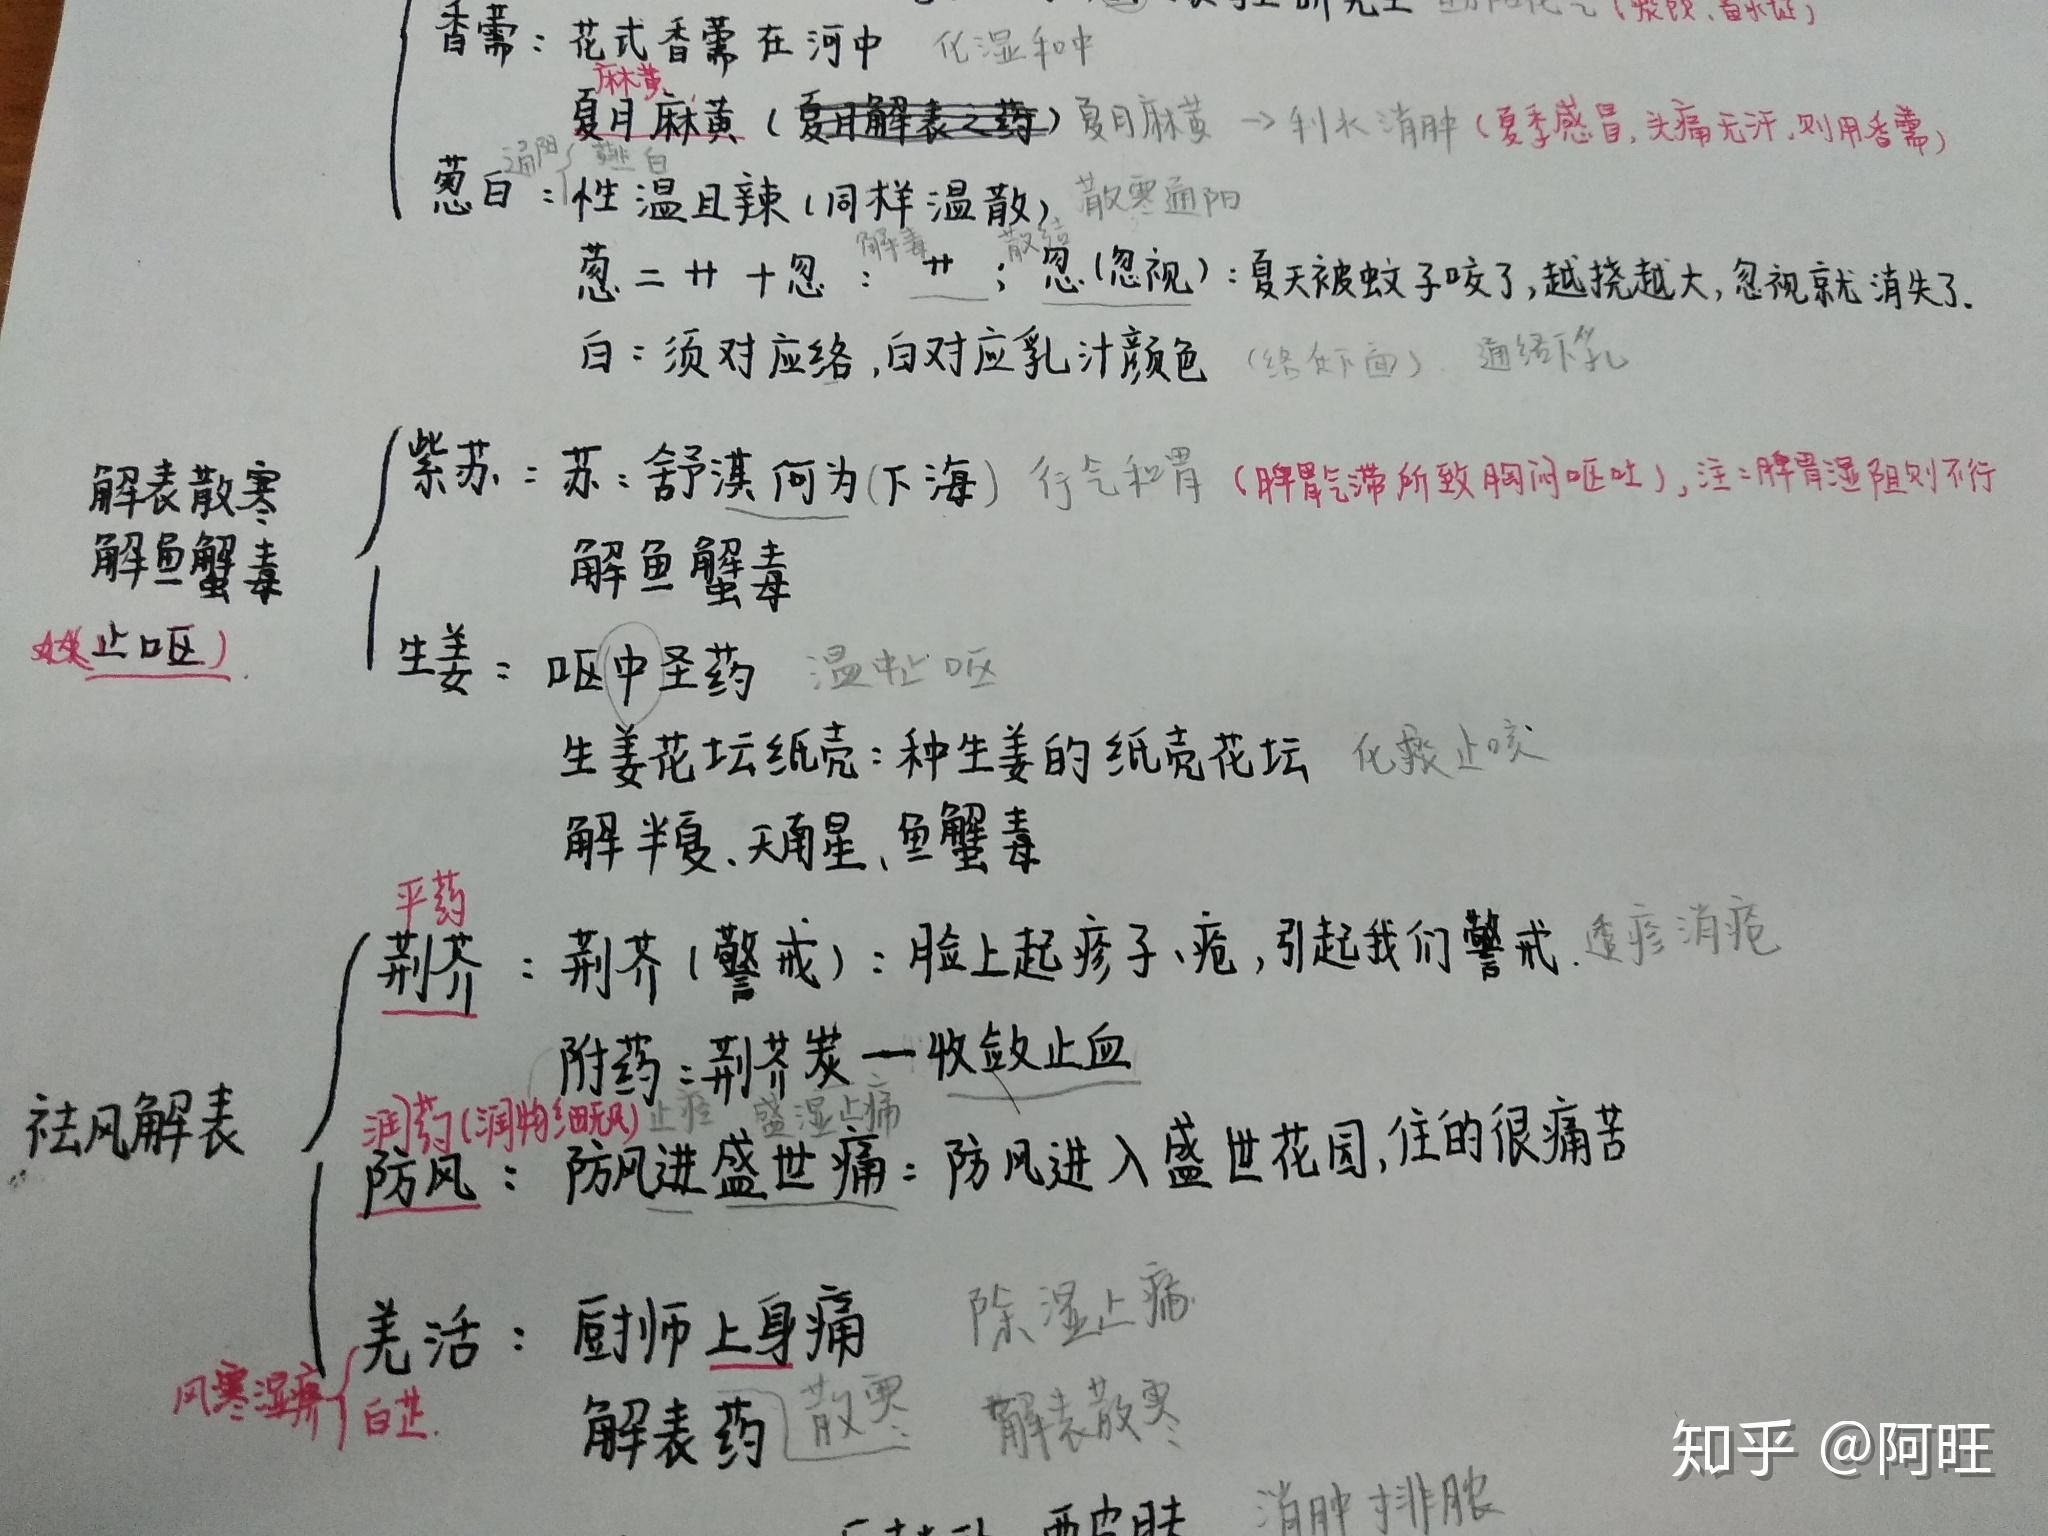 香薷：花式香薷在河中 化湿和中
麻黄
夏月麻黄（夏月解表之药）夏月麻黄 → 利水消肿（夏季感冒，头痛无汗，则用香薷）
通阳 薤白
葱白：性温且辣（同样温散） 散寒通阳
解毒 散结
葱二艹十忽：艹；忽（忽视）：夏天被蚊子咬了，越挠越大，忽视就消失了.
白：须对应络，白对应乳汁颜色（络在下面） 通络下乳
解表散寒
解鱼蟹毒
止呕）
紫苏：苏：舒淇何为（下海）行气和胃（脾胃气滞所致胸闷呕吐），注：脾胃湿阻则不行
解鱼蟹毒
生姜：呕中圣药 温中止呕
生姜花坛纸壳：种生姜的纸壳花坛 化痰止咳
解半夏、天南星、鱼蟹毒
祛风解表
平药
荆芥：荆芥（警戒）：脸上起疹子、疮，引起我们警戒. 透疹消疮
附药：荆芥炭一收敛止血
润药（润物细无风） 止痉 盛湿止痛
防风：防风进盛世痛：防风进入盛世花园，住的很痛苦
羌活：厨师上身痛 除湿止痛
风寒湿痹 白芷.
解表药 散寒 解表散寒
皮肤 消肿排脓
知乎 @阿旺